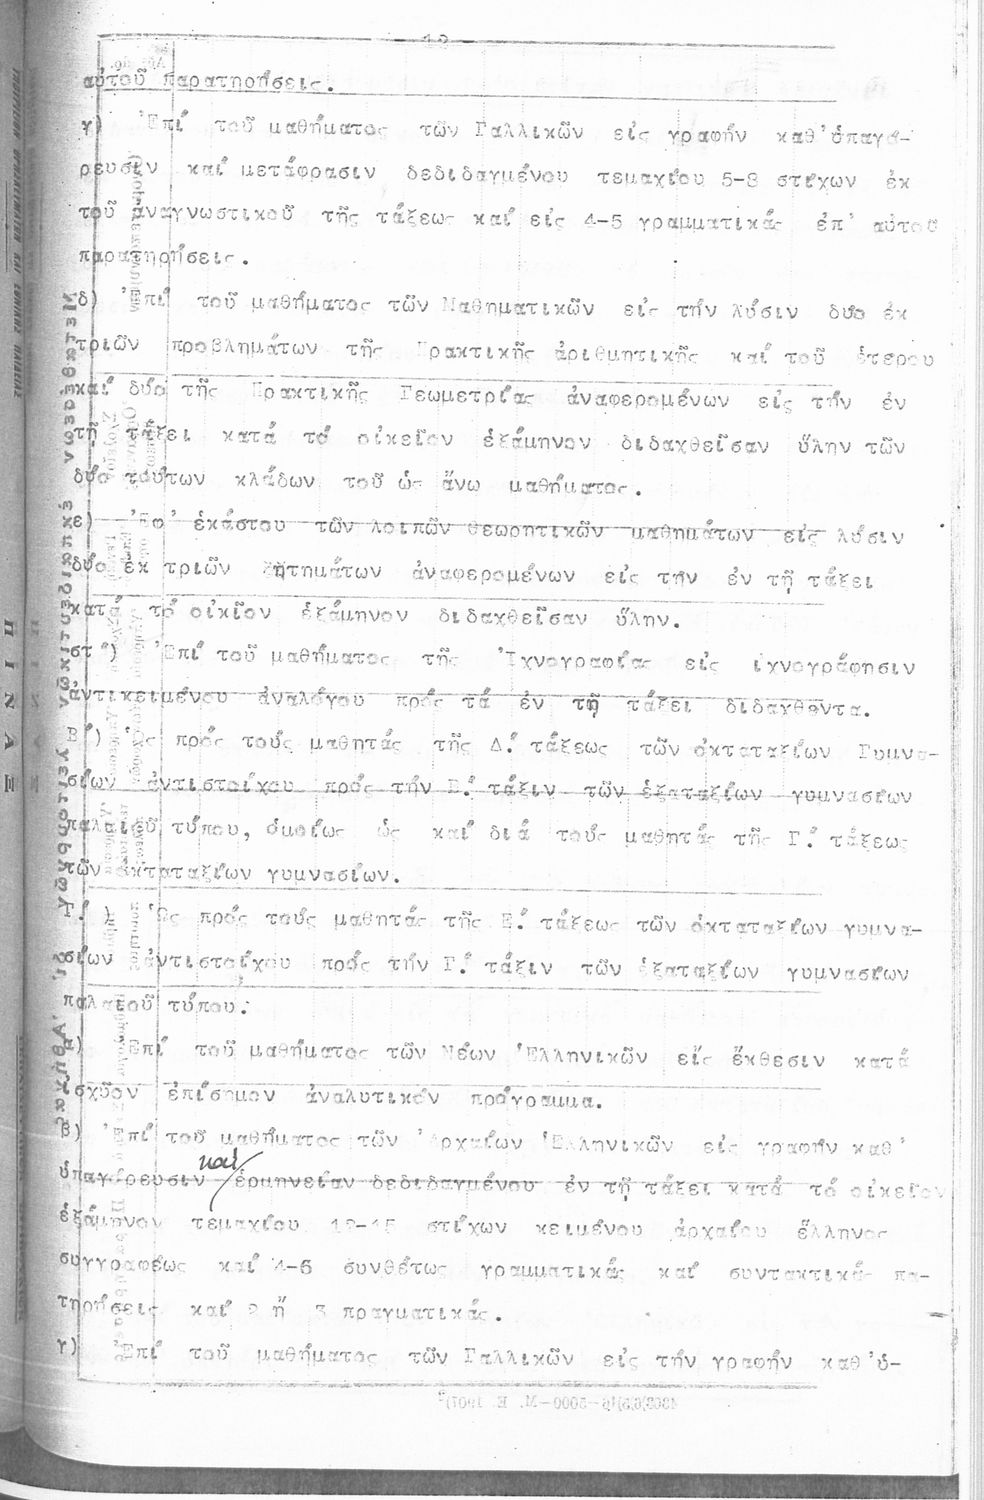 12
αὐτοῦ παρατηρήσεις.
γ) Ἐπί τοῦ μαθήματος τῶν Γαλλικῶν εἰς γραφήν καθ' ὑπαγό-
ρευσιν καί μετάφρασιν δεδιδαγμένου τεμαχίου 5-8 στίχων ἐκ
τοῦ ἀναγνωστικοῦ τῆς τάξεως καί εἰς 4-5 γραμματικάς ἐπ' αὐτοῦ
παρατηρήσεις.
δ) Ἐπί τοῦ μαθήματος τῶν Μαθηματικῶν εἰς τήν λύσιν δύο ἐκ
τριῶν προβλημάτων τῆς Πρακτικῆς ἀριθμητικῆς καί τοῦ ἑτέρου
καί δύο τῆς Πρακτικῆς Γεωμετρίας ἀναφερομένων εἰς τήν ἐν
τῇ τάξει κατά τό οἰκεῖον ἑξάμηνον διδαχθεῖσαν ὕλην τῶν
δύο τούτων κλάδων τοῦ ὡς ἄνω μαθήματος.
ε) Ἐφ' ἑκάστου τῶν λοιπῶν θεωρητικῶν μαθημάτων εἰς λύσιν
δύο ἐκ τριῶν ζητημάτων ἀναφερομένων εἰς τήν ἐν τῇ τάξει
κατά τό οἰκῖον ἑξάμηνον διδαχθεῖσαν ὕλην.
στ') Ἐπί τοῦ μαθήματος τῆς Ἰχνογραφίας εἰς ἰχνογράφησιν
ἀντικειμένου ἀναλόγου πρός τά ἐν τῇ τάξει διδαχθέντα.
Β') Ὡς πρός τούς μαθητάς τῆς Δ΄ τάξεως τῶν ὀκταταξίων Γυμνα-
σίων ἀντιστοίχου πρός τήν Β΄ τάξιν τῶν ἑξαταξίων γυμνασίων
παλαιοῦ τύπου, ὁμοίως ὡς καί διά τούς μαθητάς τῆς Γ΄ τάξεως
τῶν ὀκταταξίων γυμνασίων.
Γ΄) Ὡς πρός τούς μαθητάς τῆς Ε΄ τάξεως τῶν ὀκταταξίων γυμνα-
σίων ἀντιστοίχου πρός τήν Γ΄ τάξιν τῶν ἑξαταξίων γυμνασίων
παλαιοῦ τύπου:
α) Ἐπί τοῦ μαθήματος τῶν Νέων Ἑλληνικῶν εἴς ἔκθεσιν κατά
ἰσχῦον ἐπίσημον ἀναλυτικόν πρόγραμμα.
β) Ἐπί τοῦ μαθήματος τῶν Ἀρχαίων Ἑλληνικῶν εἰς γραφήν καθ'
ὑπαγόρευσιν καί ἑρμηνείαν δεδιδαγμένου ἐν τῇ τάξει κατά τό οἰκεῖον
ἑξάμηνον τεμαχίου 12-15 στίχων κειμένου ἀρχαίου ἕλληνος
συγγραφέως καί 4-6 συνθέτως γραμματικάς καί συντακτικάς πα-
τηρήσεις καί 2 ἤ 3 πραγματικάς.
γ) Ἐπί τοῦ μαθήματος τῶν Γαλλικῶν εἰς τήν γραφήν καθ' ὑ-